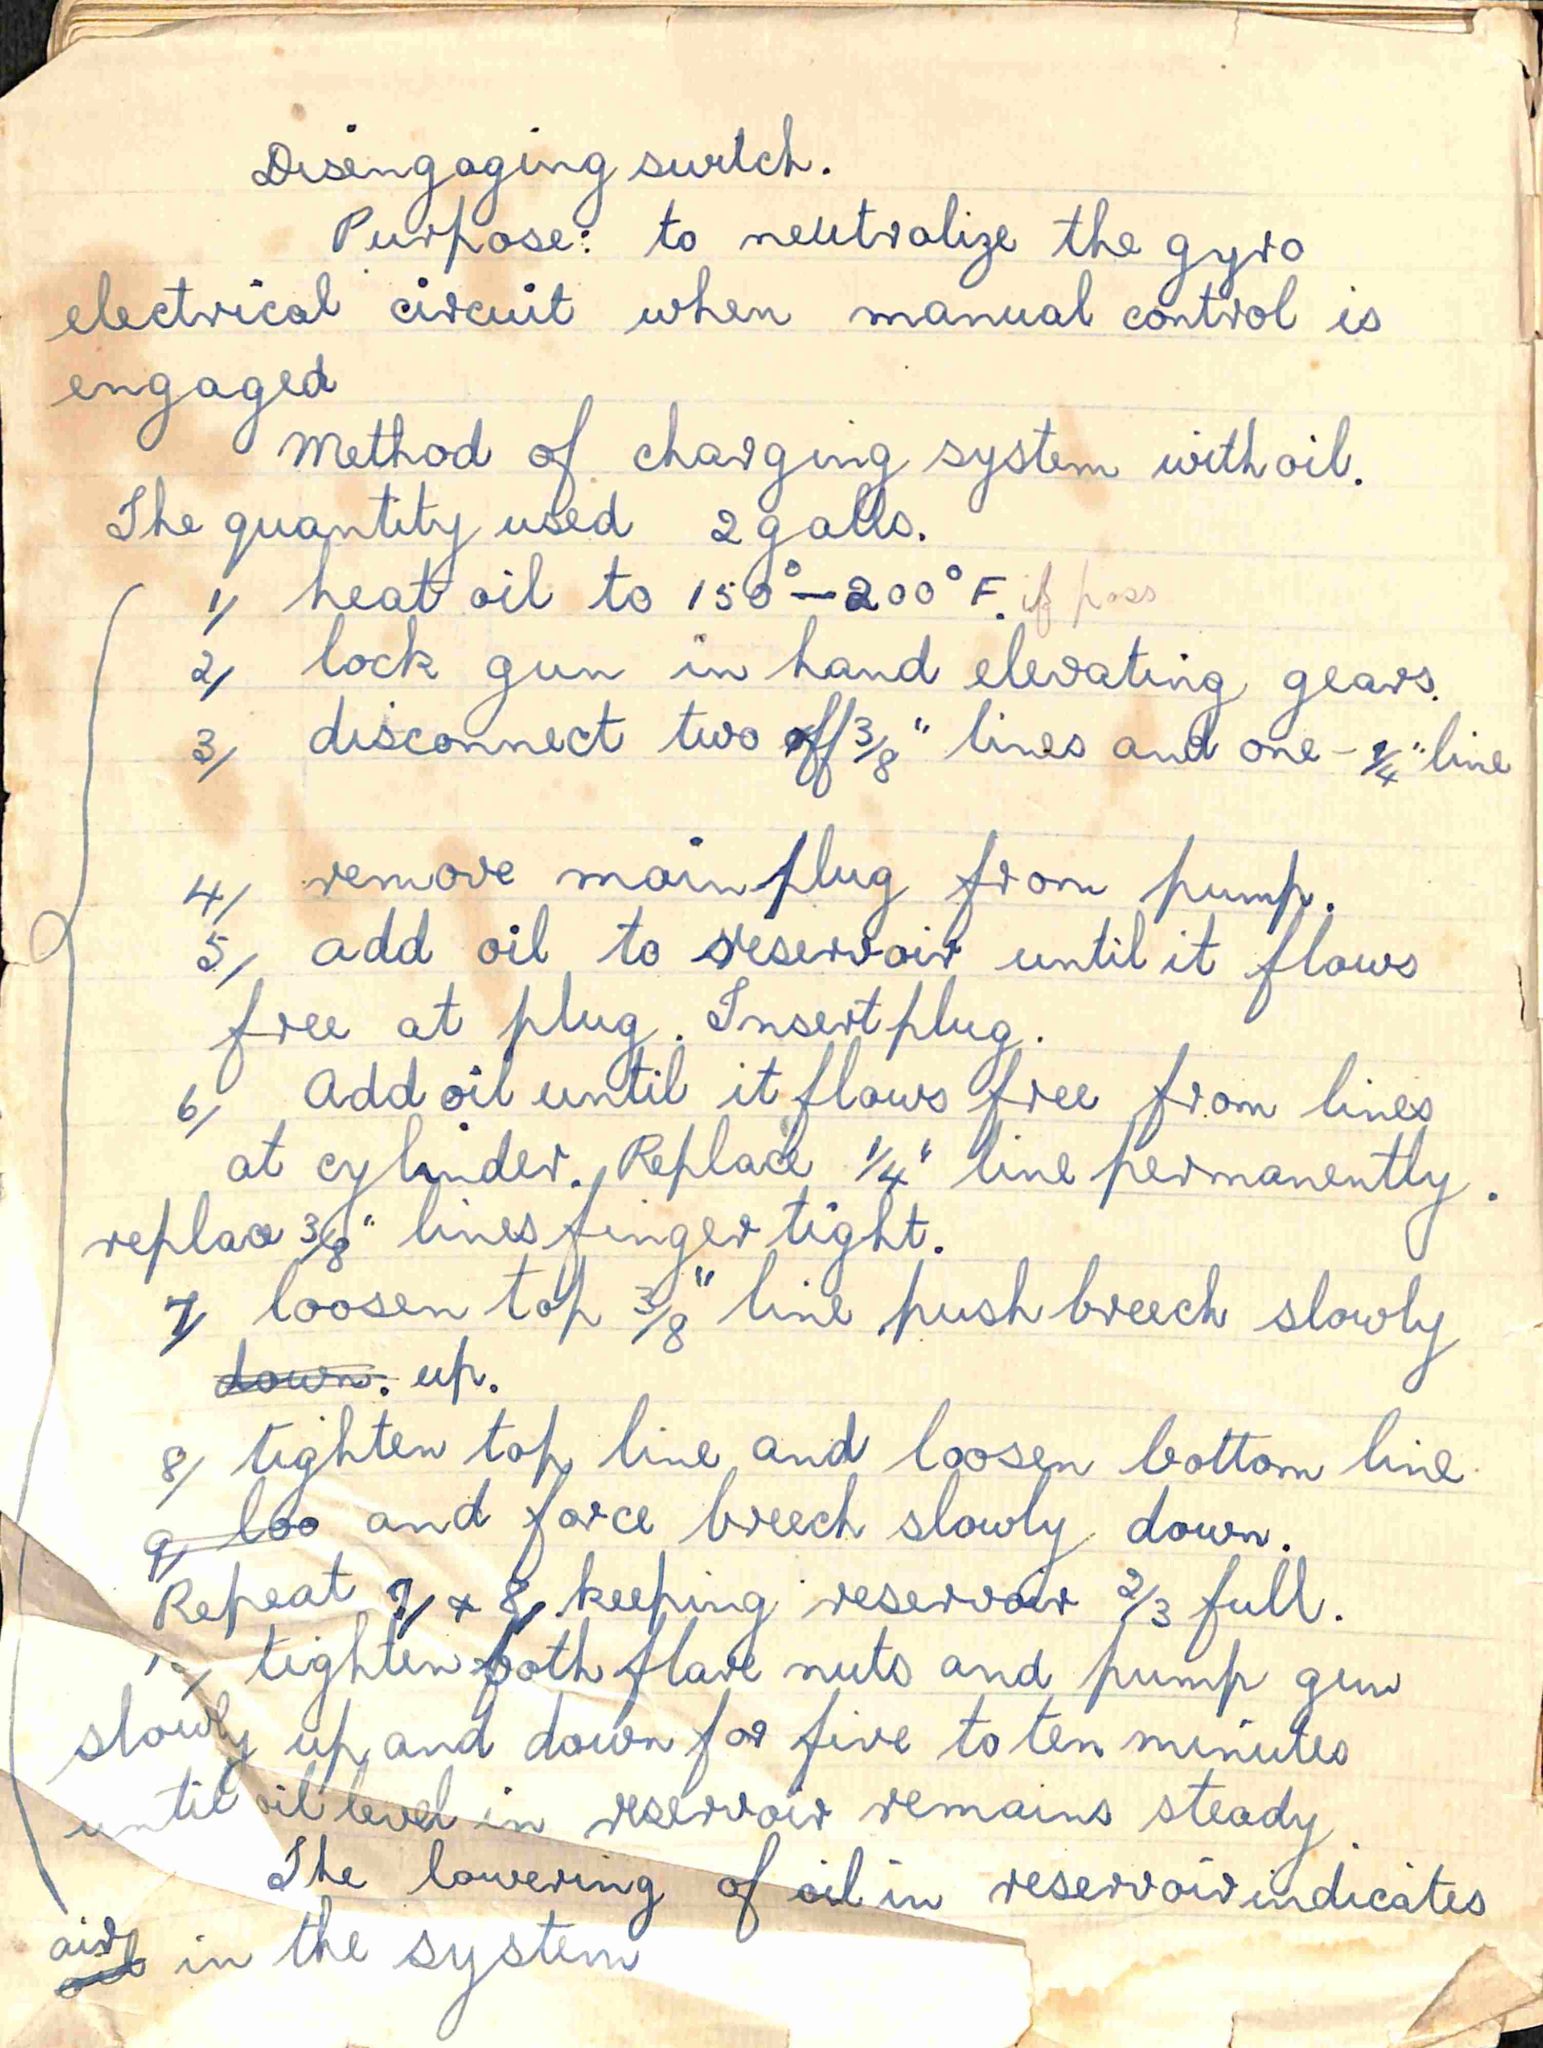 Disengaging switch.
Purpose: to neutralize the gyro
electrical circuit when manual control is
engaged
Method of charging system with oil.
The quantity used 2 galls.
1/ heat oil to 150° - 200° F. if poss
2/ lock gun in hand elevating gears.
3/ disconnect two off 3/8" lines and one - 1/4" line
4/ remove main plug from pump.
5/ add oil to reservoir until it flows
free at plug. Insert plug.
6/ Add oil until it flows free from lines
at cylinder. Replace 1/4" line permanently.
replace 3/8" lines finger tight.
7/ loosen top 3/8" line push breech slowly
down. up.
8/ tighten top line and loosen bottom line
9/ loo and force breech slowly down.
Repeat 7/ + 8/ keeping reservoir 2/3 full.
10/ tighten both flare nuts and pump gun
slowly up and down for five to ten minutes
until oil level in reservoir remains steady.
The lowering of oil in reservoir indicates
air
oil in the system